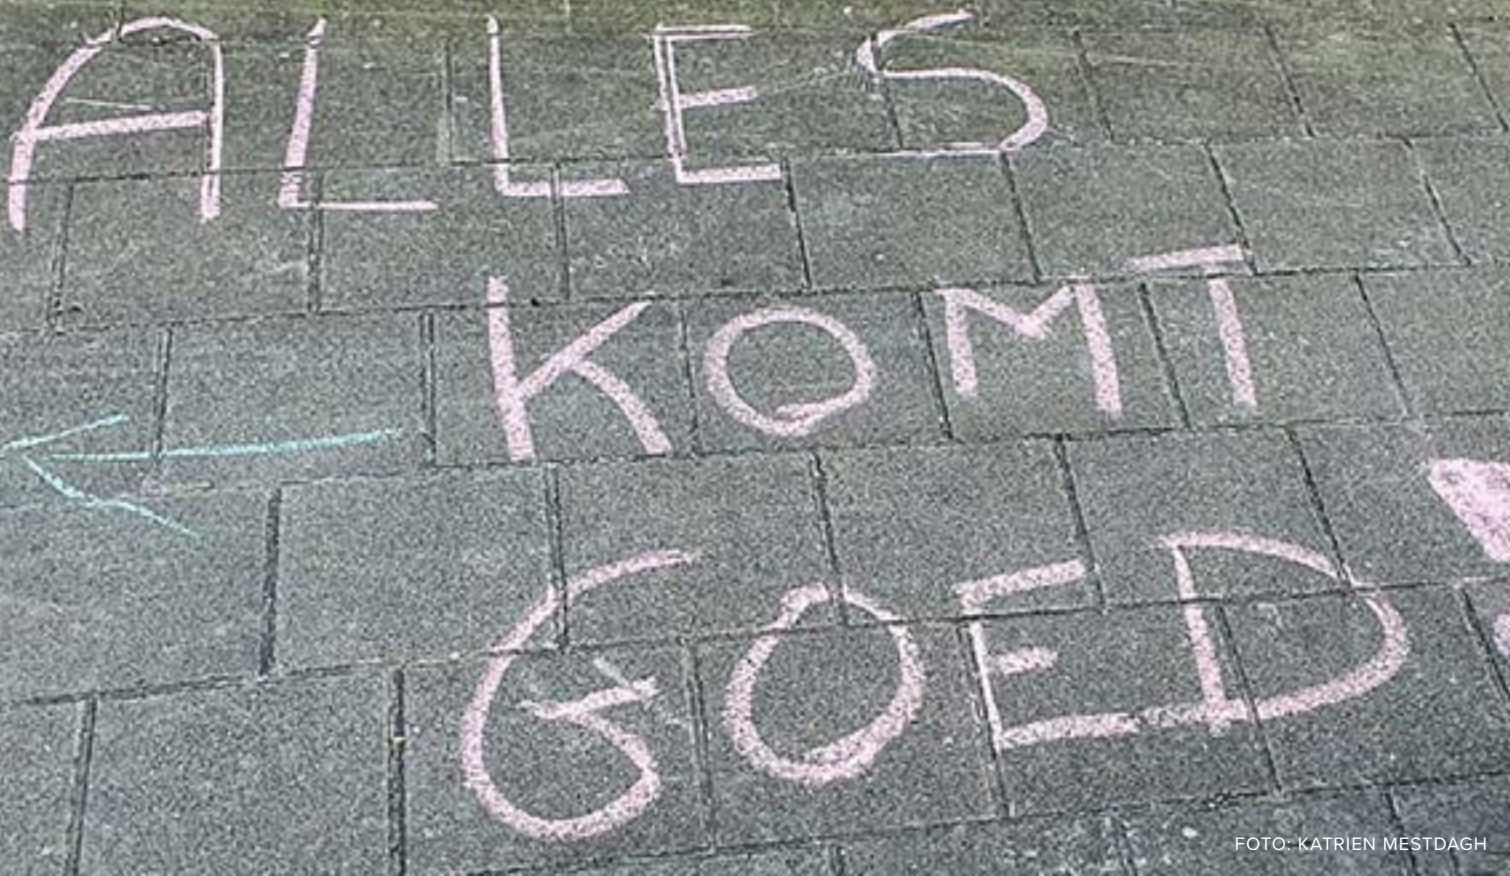 ALLES
KOMT
GOED!
FOTO: KATRIEN MESTDAGH